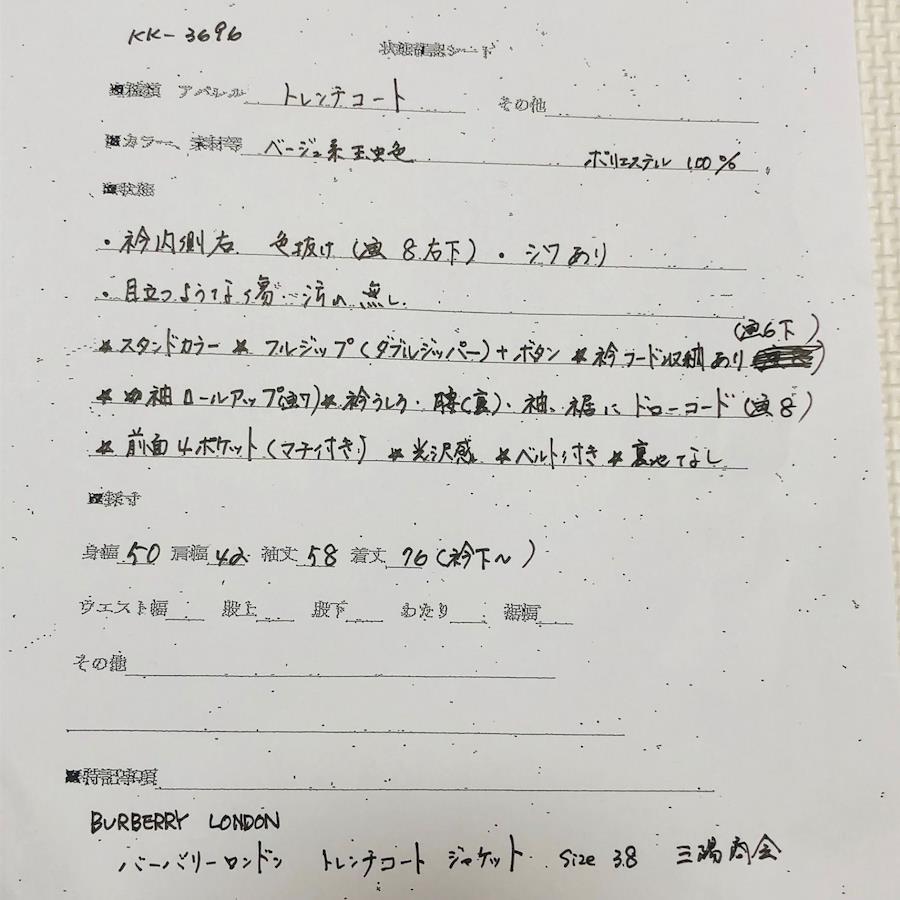 KK-3696
状態確認シート
■種類 アパレル トレンチコート その他
■カラー、素材等 ベージュ系玉虫色 ポリエステル 100%
■状態
・衿内側右 色抜け(画8右下) ・シワあり
・目立つような傷・汚れ無し
(画6下)
★スタンドカラー ★フルジップ(ダブルジッパー)+ボタン ★衿フード収納あり
★袖ロールアップ(画7)★衿うしろ・腰(裏)・袖、裾にドローコード(画8)
★前面4ポケット(マチ付き) ★光沢感 ★ベルト付き ★裏地なし
■採寸
身幅 50 肩幅 42 袖丈 58 着丈 76(衿下~)
ウエスト幅 股上 股下 わたり 裾幅
その他
■特記事項
BURBERRY LONDON
バーバリーロンドン トレンチコート ジャケット size 38 三陽商会